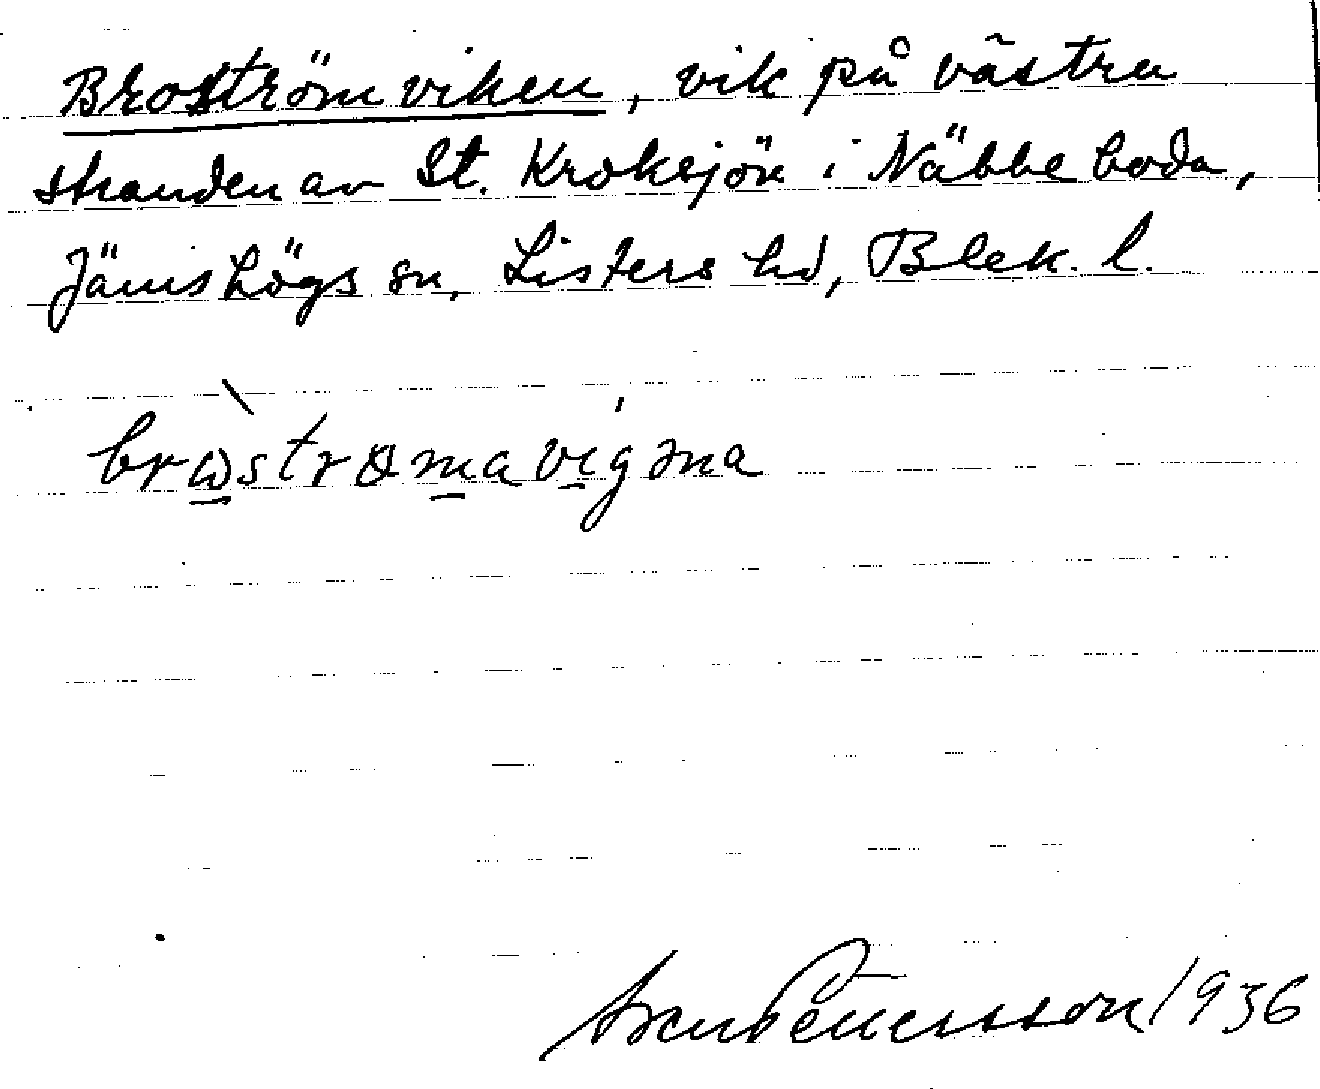 Broströmviken, vik på västra
stranden av St. Kroksjön i Näbbeboda,
Jämshögs sn, Listers hd, Blek. l.
brωstrømavigəna
Sven Pettersson 1936